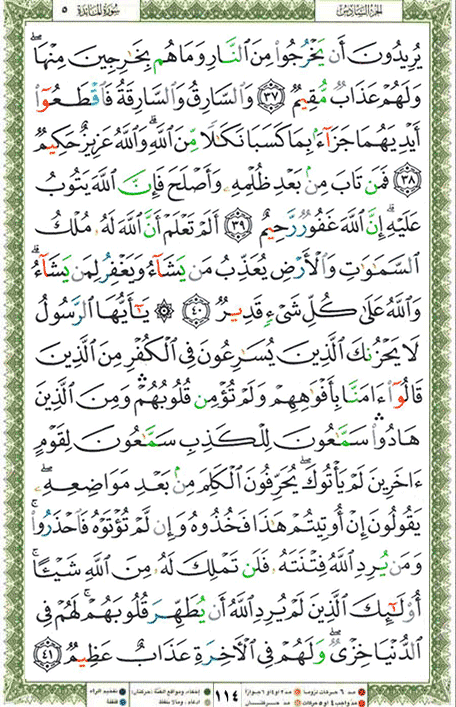 سُورَةُ المَائِدَة ٥
الجُزءُ السَّادِسُ
يُرِيدُونَ أَن يَخۡرُجُواْ مِنَ ٱلنَّارِ وَمَا هُم بِخَٰرِجِينَ مِنۡهَاۖ
وَلَهُمۡ عَذَابٞ مُّقِيمٞ ٣٧ وَٱلسَّارِقُ وَٱلسَّارِقَةُ فَٱقۡطَعُوٓاْ
أَيۡدِيَهُمَا جَزَآءَۢ بِمَا كَسَبَا نَكَٰلٗا مِّنَ ٱللَّهِۗ وَٱللَّهُ عَزِيزٌ حَكِيمٞ
٣٨ فَمَن تَابَ مِنۢ بَعۡدِ ظُلۡمِهِۦ وَأَصۡلَحَ فَإِنَّ ٱللَّهَ يَتُوبُ
عَلَيۡهِۚ إِنَّ ٱللَّهَ غَفُورٞ رَّحِيمٌ ٣٩ أَلَمۡ تَعۡلَمۡ أَنَّ ٱللَّهَ لَهُۥ مُلۡكُ
ٱلسَّمَٰوَٰتِ وَٱلۡأَرۡضِ يُعَذِّبُ مَن يَشَآءُ وَيَغۡفِرُ لِمَن يَشَآءُۗ
وَٱللَّهُ عَلَىٰ كُلِّ شَيۡءٖ قَدِيرٞ ٤٠ ۞ يَٰٓأَيُّهَا ٱلرَّسُولُ
لَا يَحۡزُنكَ ٱلَّذِينَ يُسَٰرِعُونَ فِي ٱلۡكُفۡرِ مِنَ ٱلَّذِينَ
قَالُوٓاْ ءَامَنَّا بِأَفۡوَٰهِهِمۡ وَلَمۡ تُؤۡمِن قُلُوبُهُمۡۛ وَمِنَ ٱلَّذِينَ
هَادُواْۛ سَمَّٰعُونَ لِلۡكَذِبِ سَمَّٰعُونَ لِقَوۡمٍ
ءَاخَرِينَ لَمۡ يَأۡتُوكَۖ يُحَرِّفُونَ ٱلۡكَلِمَ مِنۢ بَعۡدِ مَوَاضِعِهِۦۖ
يَقُولُونَ إِنۡ أُوتِيتُمۡ هَٰذَا فَخُذُوهُ وَإِن لَّمۡ تُؤۡتَوۡهُ فَٱحۡذَرُواْۚ
وَمَن يُرِدِ ٱللَّهُ فِتۡنَتَهُۥ فَلَن تَمۡلِكَ لَهُۥ مِنَ ٱللَّهِ شَيۡـًٔاۚ
أُوْلَٰٓئِكَ ٱلَّذِينَ لَمۡ يُرِدِ ٱللَّهُ أَن يُطَهِّرَ قُلُوبَهُمۡۚ لَهُمۡ فِي
ٱلدُّنۡيَا خِزۡيٞۖ وَلَهُمۡ فِي ٱلۡأٓخِرَةِ عَذَابٌ عَظِيمٞ ٤١
١١٤
مد ٦ حركات لزوما مد ٢ أو ٤ أو ٦ جوازا
مد واجب ٤ أو ٥ حركات مد حركتان
إخفاء، ومواقع الغنة (حركتان) تفخيم الراء
إدغام، وما لا يلفظ قلقلة